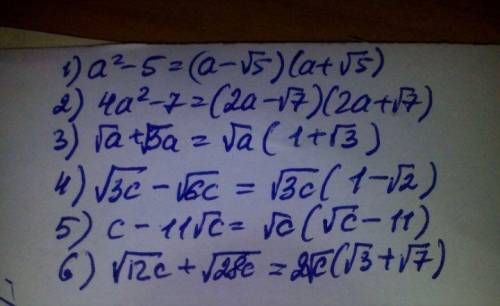 1) a²-5=(a-√5)(a+√5)
2) 4a²-7=(2a-√7)(2a+√7)
3) √a+√3a=√a(1+√3)
4) √3c-√6c=√3c(1-√2)
5) c-11√c=√c(√c-11)
6) √12c+√28c=2√c(√3+√7)